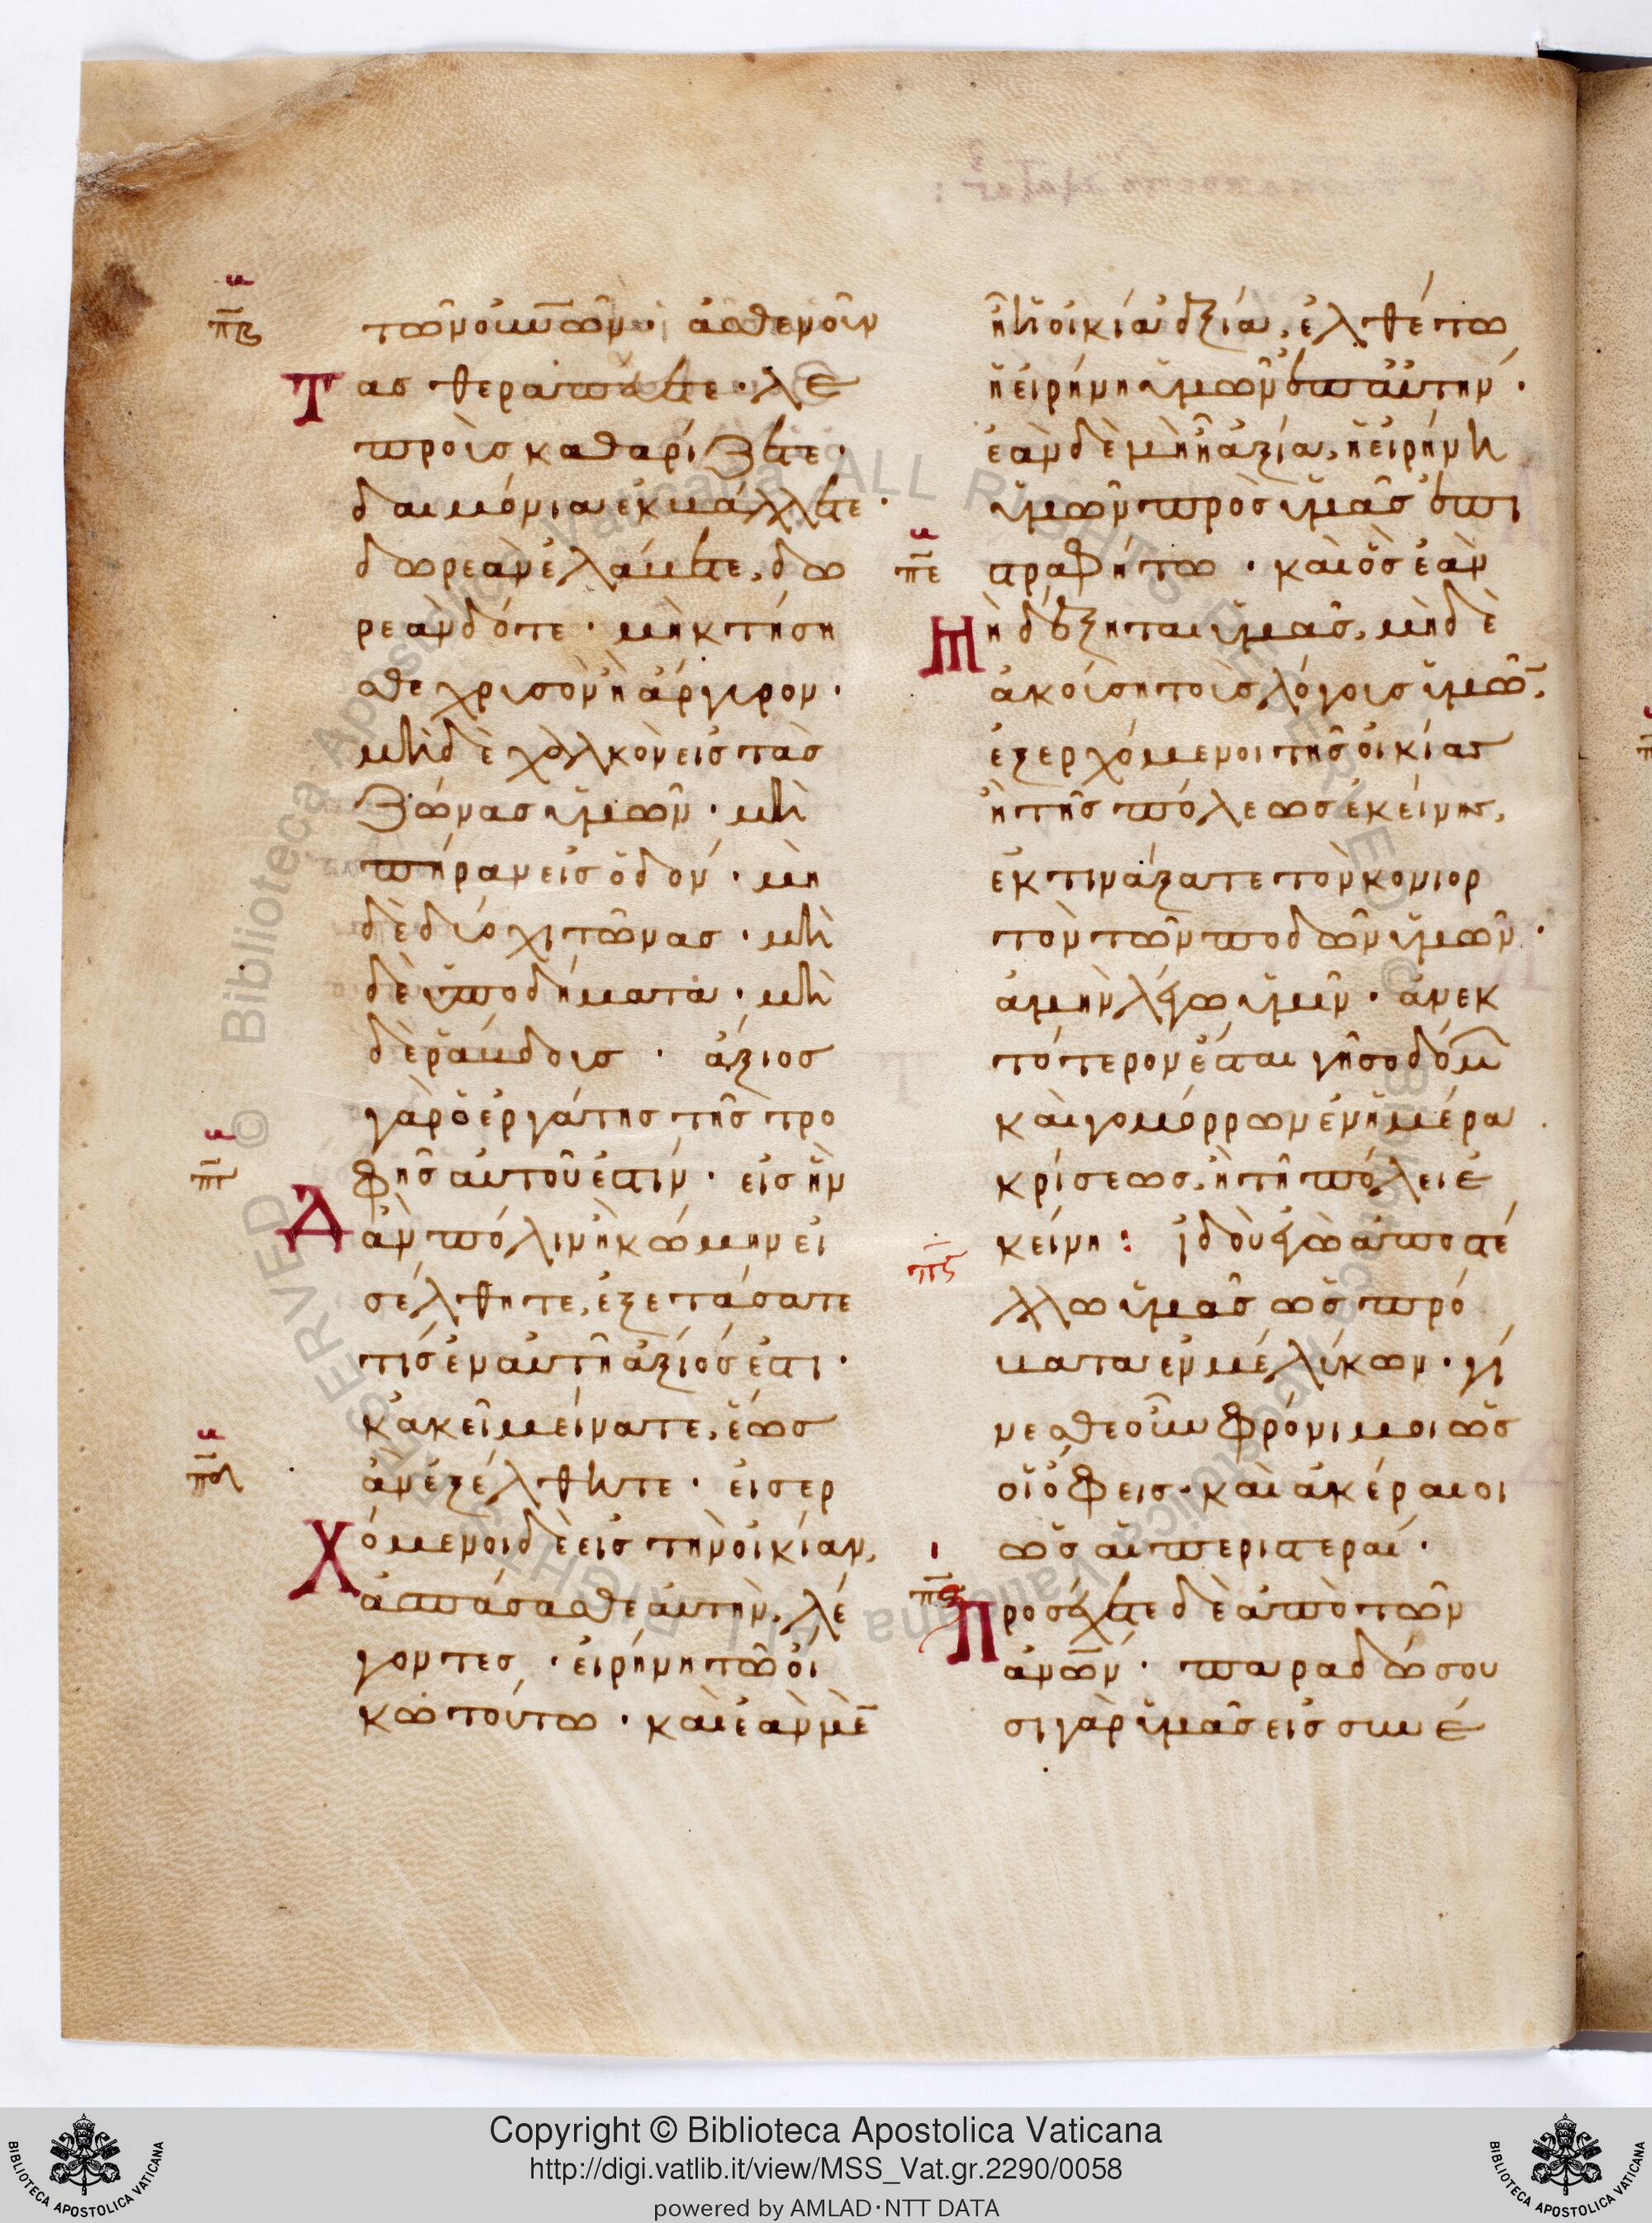 τῶν οὐν̅ῶν· ἀσθενοῦν
Τας θεραπεύετε· λε
προὺσ καθαρίζετε·
δαιμόνια ἐκβάλλετε·
δωρεὰν ἐλάβετε, δω
ρεὰν δότε· μὴ κτήση
σθε χρυσὸν ἢ ἄργυρον·
μὴ δὲ χαλκὸν εἰσ τὰσ
ζώνασ ὑμῶν· μὴ
πήραν εἰσ ὁδόν· μη
δὲ δύο χιτῶνασ· μὴ
δὲ ὑποδήματα· μὴ
δὲ ῥάβδουσ· ἄξιοσ
γὰρ ὁ ἐργάτησ τῆσ τρο
φῆσ αὐτοῦ ἐστίν· εἰσ ἣν
Δ ἂν πόλιν ἢ κώμην εἰ
σέλθητε, ἐξετάσατε
τίσ ἐν αὐτῆ ἄξιόσ ἐστι·
κἀκεῖ μείνατε, ἕωσ
ἂν ἐξέλθητε· εἰσερ
Χόμενοι δὲ εἰσ τὴν οἰκίαν,
ἀσπάσασθε αὐτὴν, λέ
γοντεσ· εἰρήνη τῶ οἴ
κω τούτω· καὶ ἐὰν μὲ̅
ῆ ἡ οἰκία ἀξία, ἐλθέτω
ἡ εἰρήνη ὑμῶν ἐπ αὐτήν·
ἐὰν δὲ μὴ ῆ ἀξία, ἡ εἰρήνη
ὑμῶν πρὸσ ὑμᾶσ ἐπι
στραφήτω· καὶ ὃσ ἐὰν
Μὴ δέξηται ὑμᾶσ, μὴ δὲ
ἀκούση τοὺσ λόγουσ ὑμῶ̅,
ἐξερχόμενοι τῆσ οἰκίασ
ἢ τῆσ πόλεωσ ἐκείνησ,
ἐκτινάξατε τὸν κονιορ
τὸν τῶν ποδῶν ὑμῶν·
ἀμὴν λέγω ὑμῖν· ἀνεκ
τότερον ἔσται γῆ σοδόμ
καὶ γομόρρων ἐν ἡμέρα
κρίσεωσ, ἢ τῆ πόλει ἐ
κείνη: ἰδοὺ ἐγὼ ἀποστέ
λλω ὑμᾶσ ὡσ πρό
βατα ἐν μέσω λύκων· γί
νεσθε οὖν φρόνιμοι ὡσ
οἱ ὄφεισ· καὶ ἀκέραιοι
ὡσ αἱ περιστεραί·
Προσέχετε δὲ ἀπὸ τῶν
ἀνω̅ν· παραδώσου
σι γὰρ ὑμᾶσ εἰσ συνέ
Copyright © Biblioteca Apostolica Vaticana
http://digi.vatlib.it/view/MSS_Vat.gr.2290/0058
powered by AMLAD·NTT DATA
BIBLIOTECA APOSTOLICA VATICANA
BIBLIOTECA APOSTOLICA VATICANA